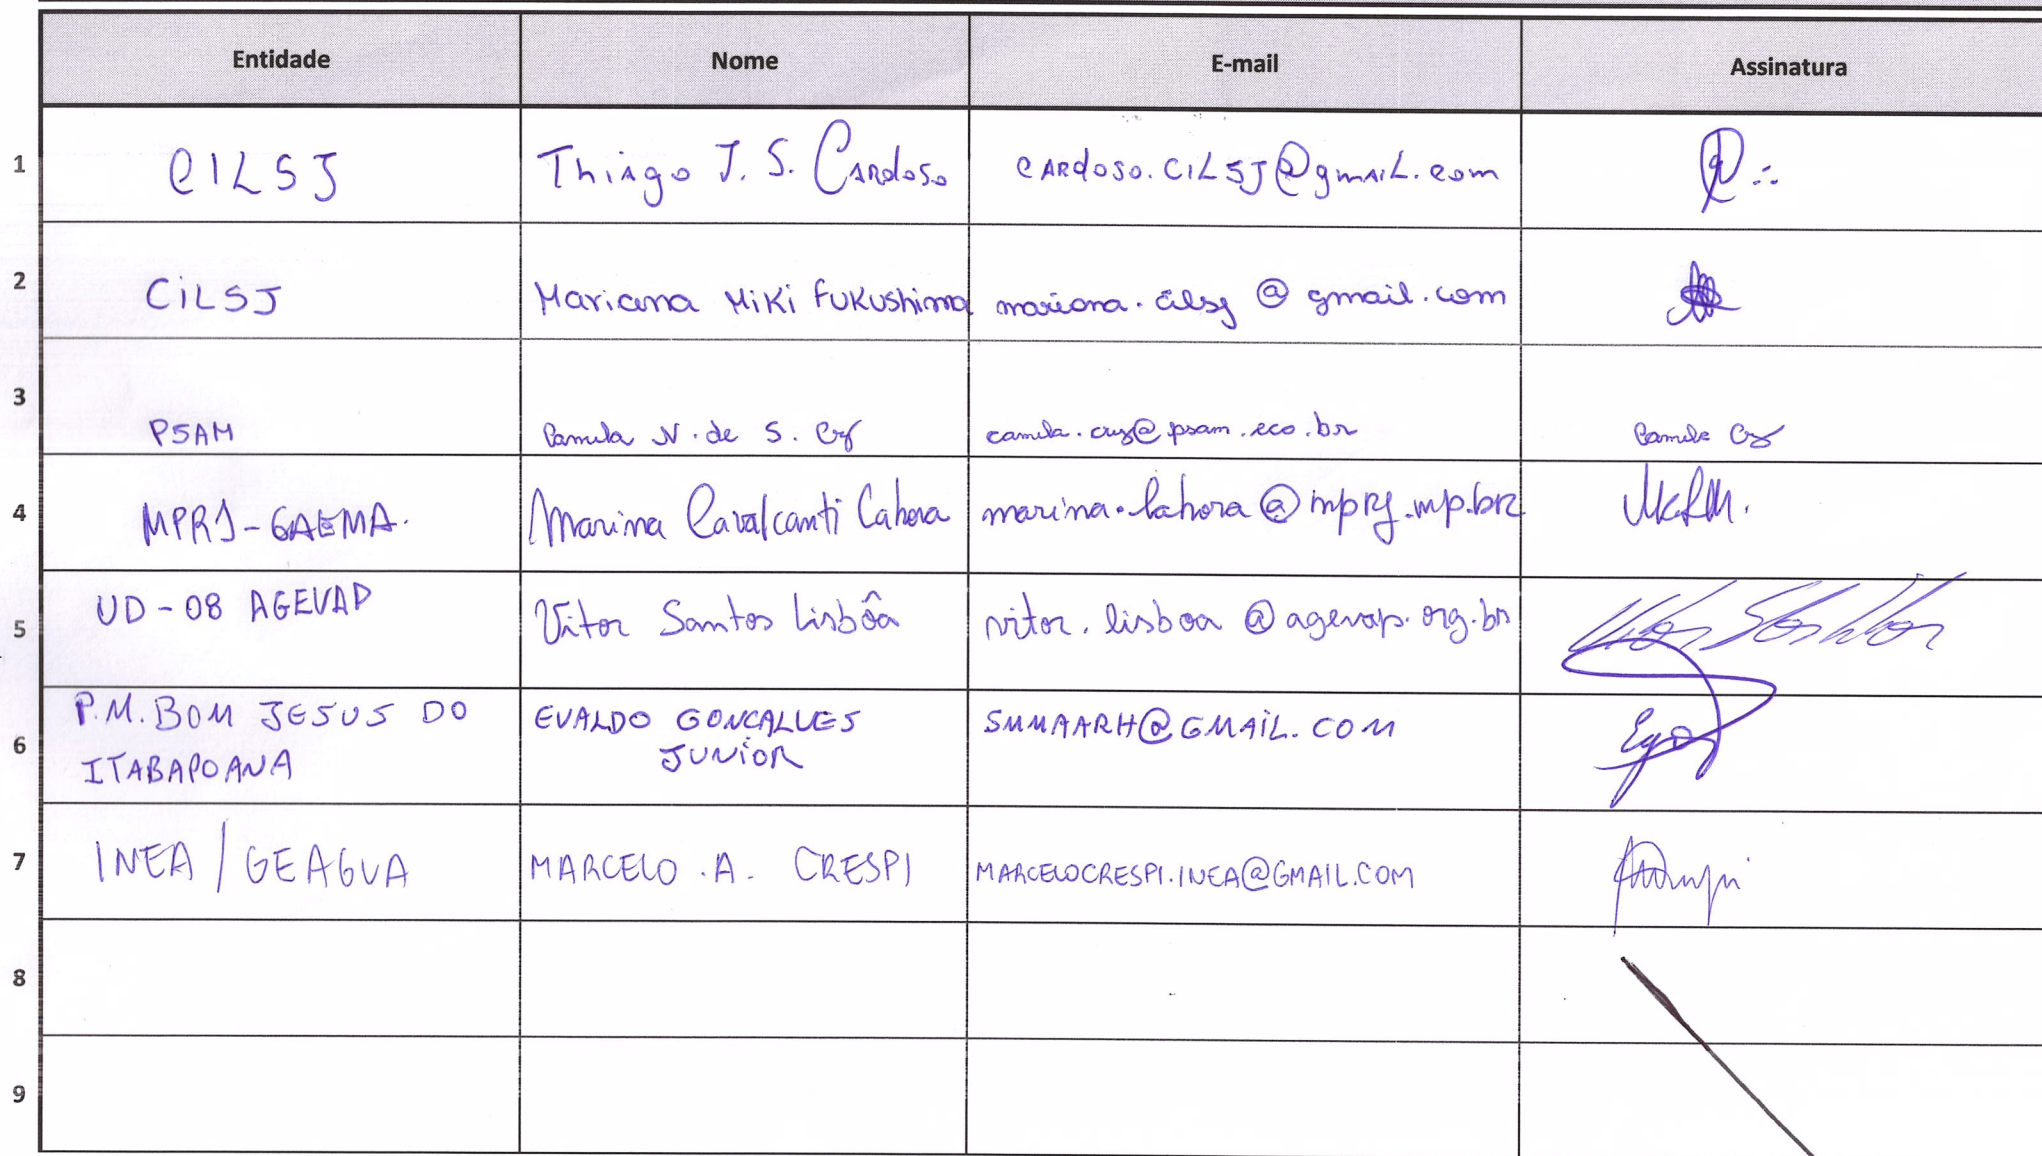 Entidade Nome E-mail Assinatura
1 CILSJ Thiago J. S. Cardoso cardoso.cilsj@gmail.com
2 CILSJ Mariana Miki Fukushima mariana.cilsj @ gmail.com
3 PSAM Camila N. de S. Cruz camila.cruz@psam.eco.br Camila Cruz
4 MPRJ-GAEMA. Marina Cavalcanti Lahora marina.lahora@mprj.mp.br
5 UD-08 AGEVAP Vitor Santos Lisbôa vitor.lisboa @agevap.org.br
6 P.M. BOM JESUS DO EVALDO GONCALVES SMMAARH@GMAIL.COM
ITABAPOANA JUNIOR
7 INEA / GEAGUA MARCELO .A. CRESPI MARCELOCRESPI.INEA@GMAIL.COM
8
9